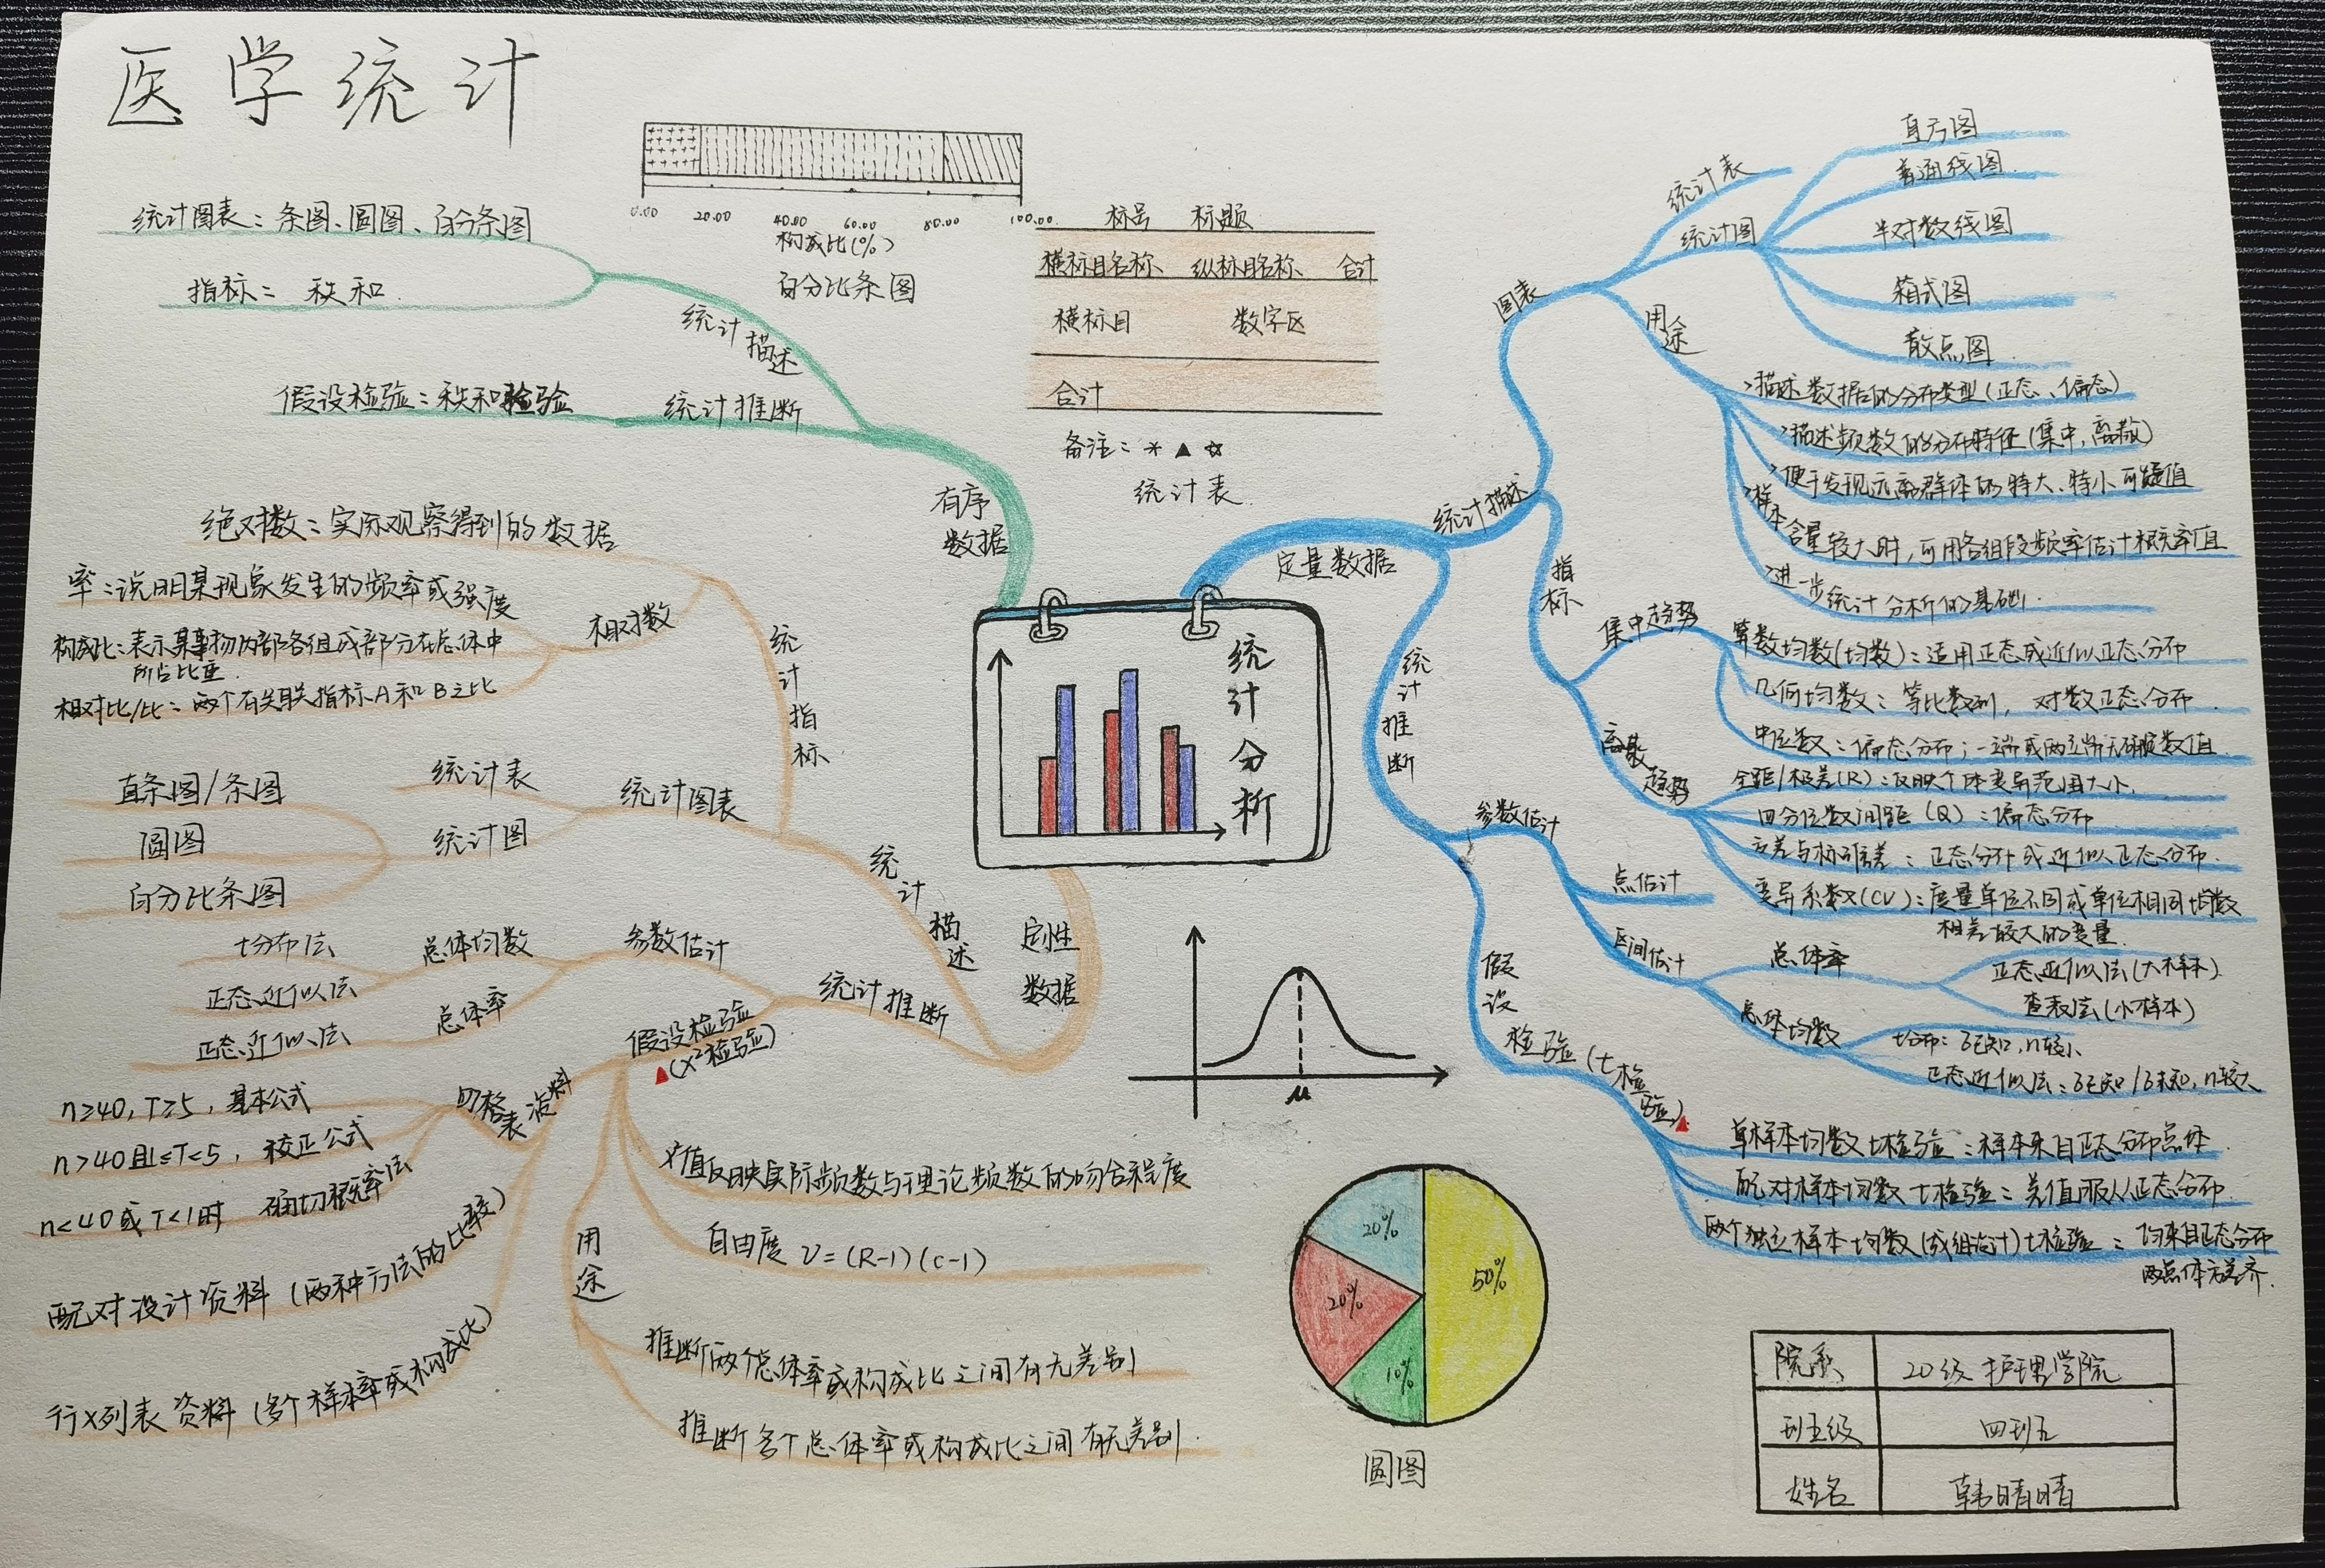 医学统计
0.00 20.00 40.00 60.00 80.00 100.00
构成比(%)
百分比条图
标号 标题
横标目名称 纵标目名称 合计
横标目 数字区
合计
备注：* ▲ ☆
统计表
统计分析
有序数据
统计描述
统计图表：条图、圆图、百分条图
指标：秩和
统计推断
假设检验：秩和检验
定量数据
统计描述
图表
统计表
统计图
直方图
普通线图
半对数线图
箱式图
散点图
用途
>描述数据的分布类型(正态、偏态)
>描述频数的分布特征(集中,离散)
>便于发现远离群体的特大、特小可疑值
>样本含量较大时,可用各组段频率估计概率值
>进一步统计分析的基础
指标
集中趋势
算数均数(均数)：适用正态或近似正态分布
几何均数：等比数列，对数正态分布
中位数：偏态分布；一端或两端无确定数值
离散趋势
全距/极差(R)：反映个体变异范围大小
四分位数间距(Q)：偏态分布
方差与标准差：正态分布或近似正态分布
变异系数(CV)：度量单位不同或单位相同均数
相差较大的变量
统计推断
参数估计
点估计
区间估计
总体率
正态近似法(大样本)
查表法(小样本)
总体均数
t分布：δ已知,n较小
正态近似法：δ已知/δ未知,n较大
假设检验(t检验)▲
单样本均数t检验：样本来自正态分布总体
配对样本均数t检验：差值服从正态分布
两个独立样本均数(成组设计)t检验：均来自正态分布
两总体方差齐
定性数据
统计描述
统计指标
绝对数：实际观察得到的数据
相对数
率：说明某现象发生的频率或强度
构成比：表示某事物内部各组成部分在总体中
所占比重
相对比/比：两个有关联指标A和B之比
统计图表
统计表
统计图
直条图/条图
圆图
百分比条图
统计推断
参数估计
总体均数
t分布法
正态近似法
总体率
正态近似法
假设检验
▲(X²检验)
四格表资料
n≥40,T≥5,基本公式
n>40且1≤T<5,校正公式
n<40或T<1时 确切概率法
配对设计资料(两种方法的比较)
行X列表资料(多个样本率或构成比)
X²值反映实际频数与理论频数的吻合程度
自由度 ν=(R-1)(c-1)
用途
推断两个总体率或构成比之间有无差别
推断多个总体率或构成比之间有无差别
μ
20%
50%
20%
10%
圆图
院系 20级护理学院
班级 四班
姓名 韩晴晴